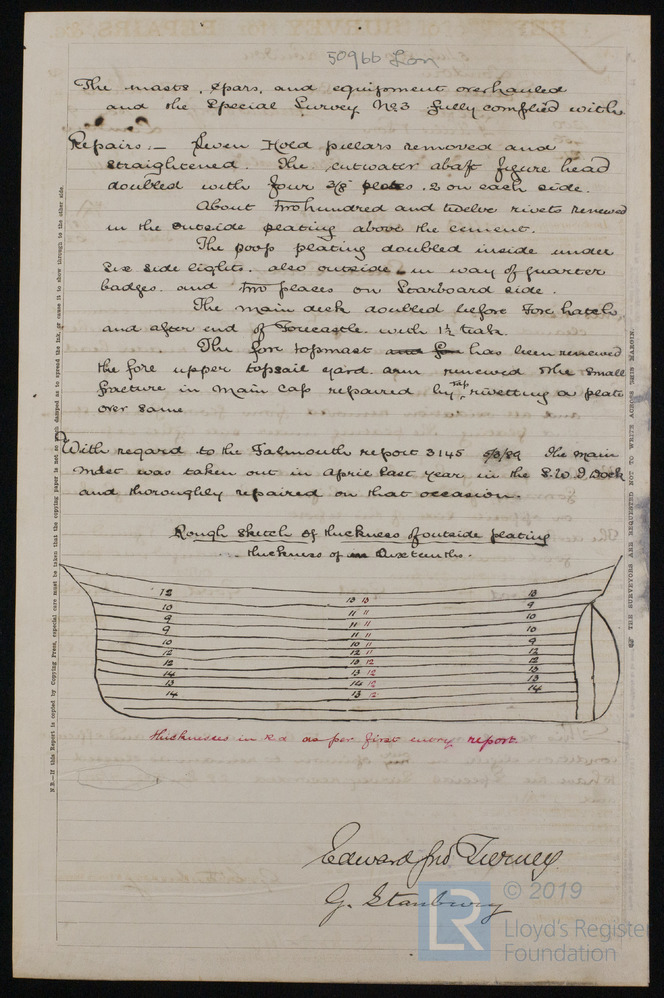 50966 Lon
The masts, spars, and equipment overhauled
and the Special Survey No 3 fully complied with
Repairs:- Seven Hold pillars removed and
straightened. The cutwater abaft figure head
doubled with four 3/8 plates, 2 on each side.
About two hundred and twelve rivets renewed
in the outside plating above the cement.
The poop plating doubled inside under
six side lights. also outside in way of quarter
badges. and two places on Starboard side.
The main deck doubled before Fore hatch
and after end of Forecastle with 1½ teak.
The fore topmast has been renewed
the fore upper topsail yard arm renewed The small
fracture in main cap repaired by tap rivetting a plate
over same
With regard to the Falmouth report 3145 The main
mast was taken out in April last year in the S.W.I. Dock
and thoroughly repaired on that occasion.
Rough sketch of thickness of outside plating
thickness of in Sixteenths.
12 13 13 13
10 11 11 9
9 11 11 10
9 11 11 10
10 10 11 9
12 12 11 12
12 13 12 12
14 13 12 13
13 14 12 13
14 13 12 14
thicknesses in Red as per first entry report.
Edward Jno Tierney
G. Stanbury
N.B.—If this Report is copied by Copying Press, especial care must be taken that the copying paper is not so much damped as to spread the ink, or cause it to show through to the other side.
THE SURVEYORS ARE REQUESTED NOT TO WRITE ACROSS THIS MARGIN.
LR
© 2019
Lloyd's Register
Foundation